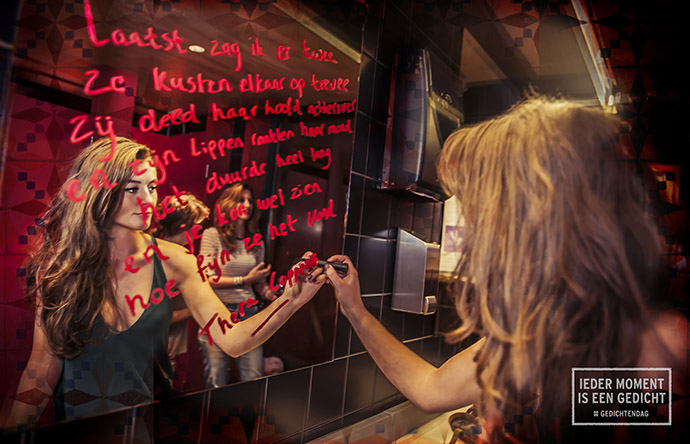 Laatst zag ik er twee
Ze kusten elkaar op teevee
Zij deed haar hoofd achterover
en zijn lippen raakten haar mond
Het duurde heel lang
en je kon wel zien
hoe fijn ze het vond
Thera Coppens
IEDER MOMENT
IS EEN GEDICHT
# GEDICHTENDAG